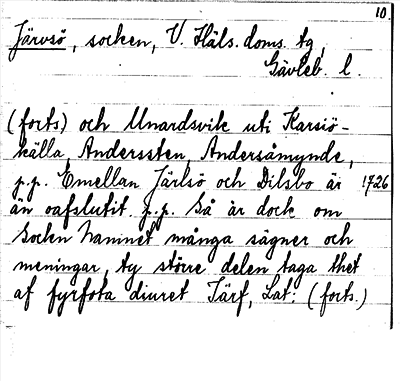 10.
Järvsö, socken, V. Häls. doms. tg,
Gävleb. l.
(forts) och Unardsvik uti Karsiö-
källa, Anderssten, Andersåmynde,
p.p. Emellan Järlsö och Dilsbo är 1726
än oafslutit. p.p. Så är dock om
Socken namnet många sägner och
meningar, ty större delen taga thet
af fyrfota diuret Järf, Lat: (forts.)